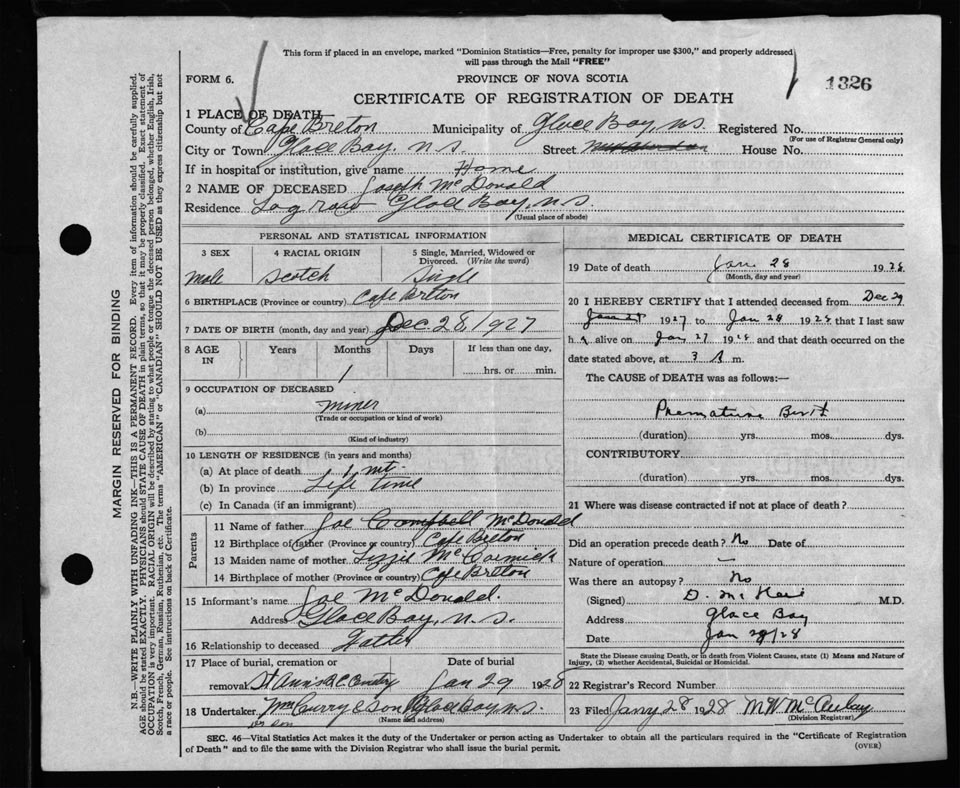 This form if placed in an envelope, marked "Dominion Statistics—Free, penalty for improper use $300," and properly addressed
will pass through the Mail "FREE"
FORM 6.
PROVINCE OF NOVA SCOTIA
1326
CERTIFICATE OF REGISTRATION OF DEATH
1 PLACE OF DEATH
County of Cape Breton Municipality of Glace Bay, n.s. Registered No.
(For use of Registrar General only)
City or Town Glace Bay. n.s. Street House No.
If in hospital or institution, give name Home
2 NAME OF DECEASED Joseph McDonald
Residence Log row Glace Bay, n.s.
(Usual place of abode)
PERSONAL AND STATISTICAL INFORMATION
3 SEX 4 RACIAL ORIGIN 5 Single, Married, Widowed or Divorced. (Write the word)
Male Scotch Single
6 BIRTHPLACE (Province or country) Cape Breton
7 DATE OF BIRTH (month, day and year) Dec. 28, 1927
8 AGE IN Years Months Days If less than one day,
1 hrs. or min.
9 OCCUPATION OF DECEASED
(a) Miner
(Trade or occupation or kind of work)
(b)
(Kind of industry)
10 LENGTH OF RESIDENCE (in years and months)
(a) At place of death 1 mt.
(b) In province Life time
(c) In Canada (if an immigrant)
Parents
11 Name of father Joe Campbell McDonald
12 Birthplace of father (Province or country) Cape Breton
13 Maiden name of mother Lizzie McCormick
14 Birthplace of mother (Province or country) Cape Breton
15 Informant's name Joe McDonald.
Address Glace Bay, n.s.
16 Relationship to deceased Father
17 Place of burial, cremation or removal Date of burial
St Ann's R.C. Jan 29 1928
18 Undertaker Curry & Son Glace Bay n.s.
(Name and address)
MEDICAL CERTIFICATE OF DEATH
19 Date of death Jan. 28 1928
(Month, day and year)
20 I HEREBY CERTIFY that I attended deceased from Dec 29
1927 to Jan 28 1928 that I last saw
h alive on Jan 27 1928 and that death occurred on the
date stated above, at 3 A m.
The CAUSE of DEATH was as follows:—
Premature Birth
(duration) yrs. mos. dys.
CONTRIBUTORY
(duration) yrs. mos. dys.
21 Where was disease contracted if not at place of death?
Did an operation precede death? No Date of
Nature of operation —
Was there an autopsy? No
(Signed) D. M.D.
Address Glace Bay
Date Jan 28/28
State the Disease causing Death, or in death from Violent Causes, state (1) Means and Nature of
Injury, (2) whether Accidental, Suicidal or Homicidal.
22 Registrar's Record Number
23 Filed Jany 28 1928 M.W. McAulay
(Division Registrar)
SEC. 46—Vital Statistics Act makes it the duty of the Undertaker or person acting as Undertaker to obtain all the particulars required in the "Certificate of Registration
of Death" and to file the same with the Division Registrar who shall issue the burial permit.
(OVER)
MARGIN RESERVED FOR BINDING
N.B.—WRITE PLAINLY WITH UNFADING INK—THIS IS A PERMANENT RECORD. Every item of information should be carefully supplied.
AGE should be stated EXACTLY. PHYSICIANS should STATE CAUSE OF DEATH in plain terms, so that it may be properly classified. Exact statement of
OCCUPATION is very important. RACIAL ORIGIN will be described by stating to what people or tongue the deceased person belonged, whether English, Irish,
Scotch, French, German, Russian, Ruthenian, etc. The terms "AMERICAN" or "CANADIAN" SHOULD NOT BE USED as they express citizenship but not
a race or people. See instructions on back of Certificate.